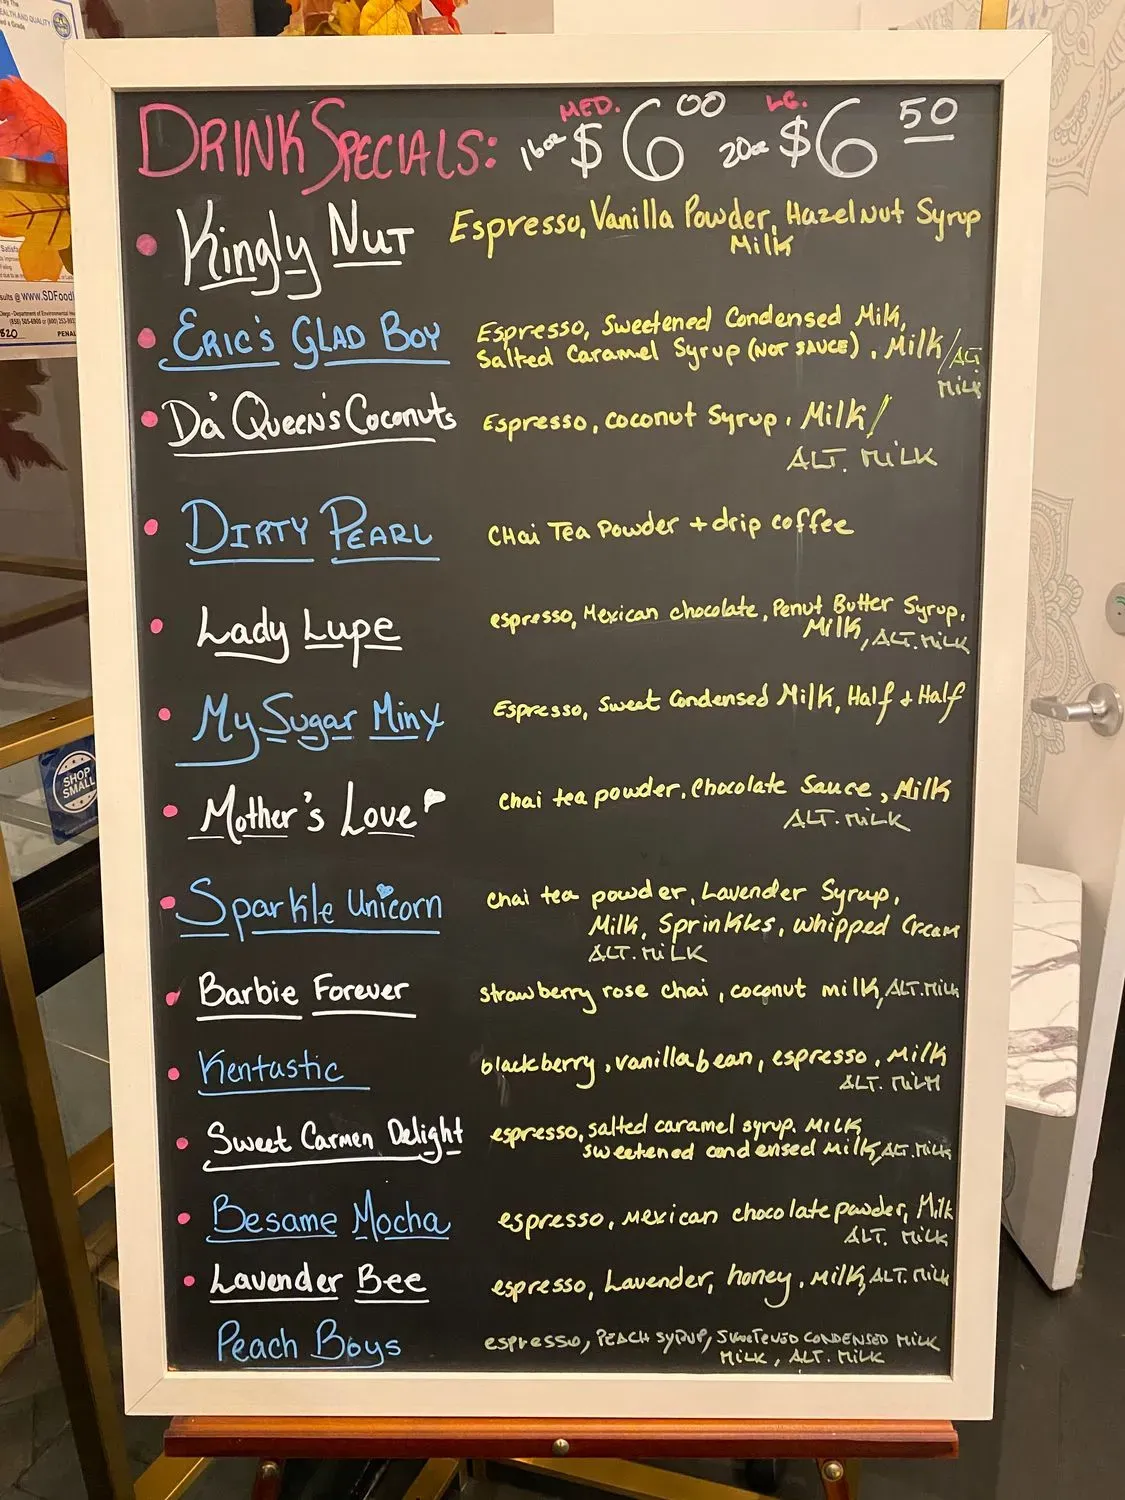 DRINK SPECIALS: 16oz MED. $6 00 20oz LG. $6 50
Kingly Nut Espresso, Vanilla Powder, Hazelnut Syrup
Milk
Eric's Glad Boy Espresso, Sweetened Condensed Milk,
Salted Caramel Syrup (NOT SAUCE), Milk/ALT
MILK
Da' Queen's Coconuts Espresso, coconut Syrup, Milk/
ALT. MILK
Dirty Pearl CHai Tea Powder + drip coffee
Lady Lupe espresso, Mexican chocolate, Penut Butter Syrup,
Milk, ALT. MILK
My Sugar Miny Espresso, Sweet Condensed Milk, Half & Half
Mother's Love chai tea powder, Chocolate Sauce, Milk
ALT. MILK
Sparkle Unicorn chai tea powder, Lavender Syrup,
Milk, Sprinkles, whipped Cream
ALT. MILK
Barbie Forever strawberry rose chai, coconut milk, ALT. MILK
Kentastic blackberry, vanilla bean, espresso, Milk
ALT. MILK
Sweet Carmen Delight espresso, salted caramel syrup. MILK
sweetened condensed Milk, ALT. MILK
Besame Mocha espresso, Mexican chocolate powder, Milk
ALT. MILK
Lavender Bee espresso, Lavender, honey, Milk, ALT. MILK
Peach Boys espresso, PEACH SYRUP, SWEETENED CONDENSED MILK
MILK, ALT. MILK
EALTH AND QUALITY
www.SDFoodI
PENAL
SHOP
SMALL